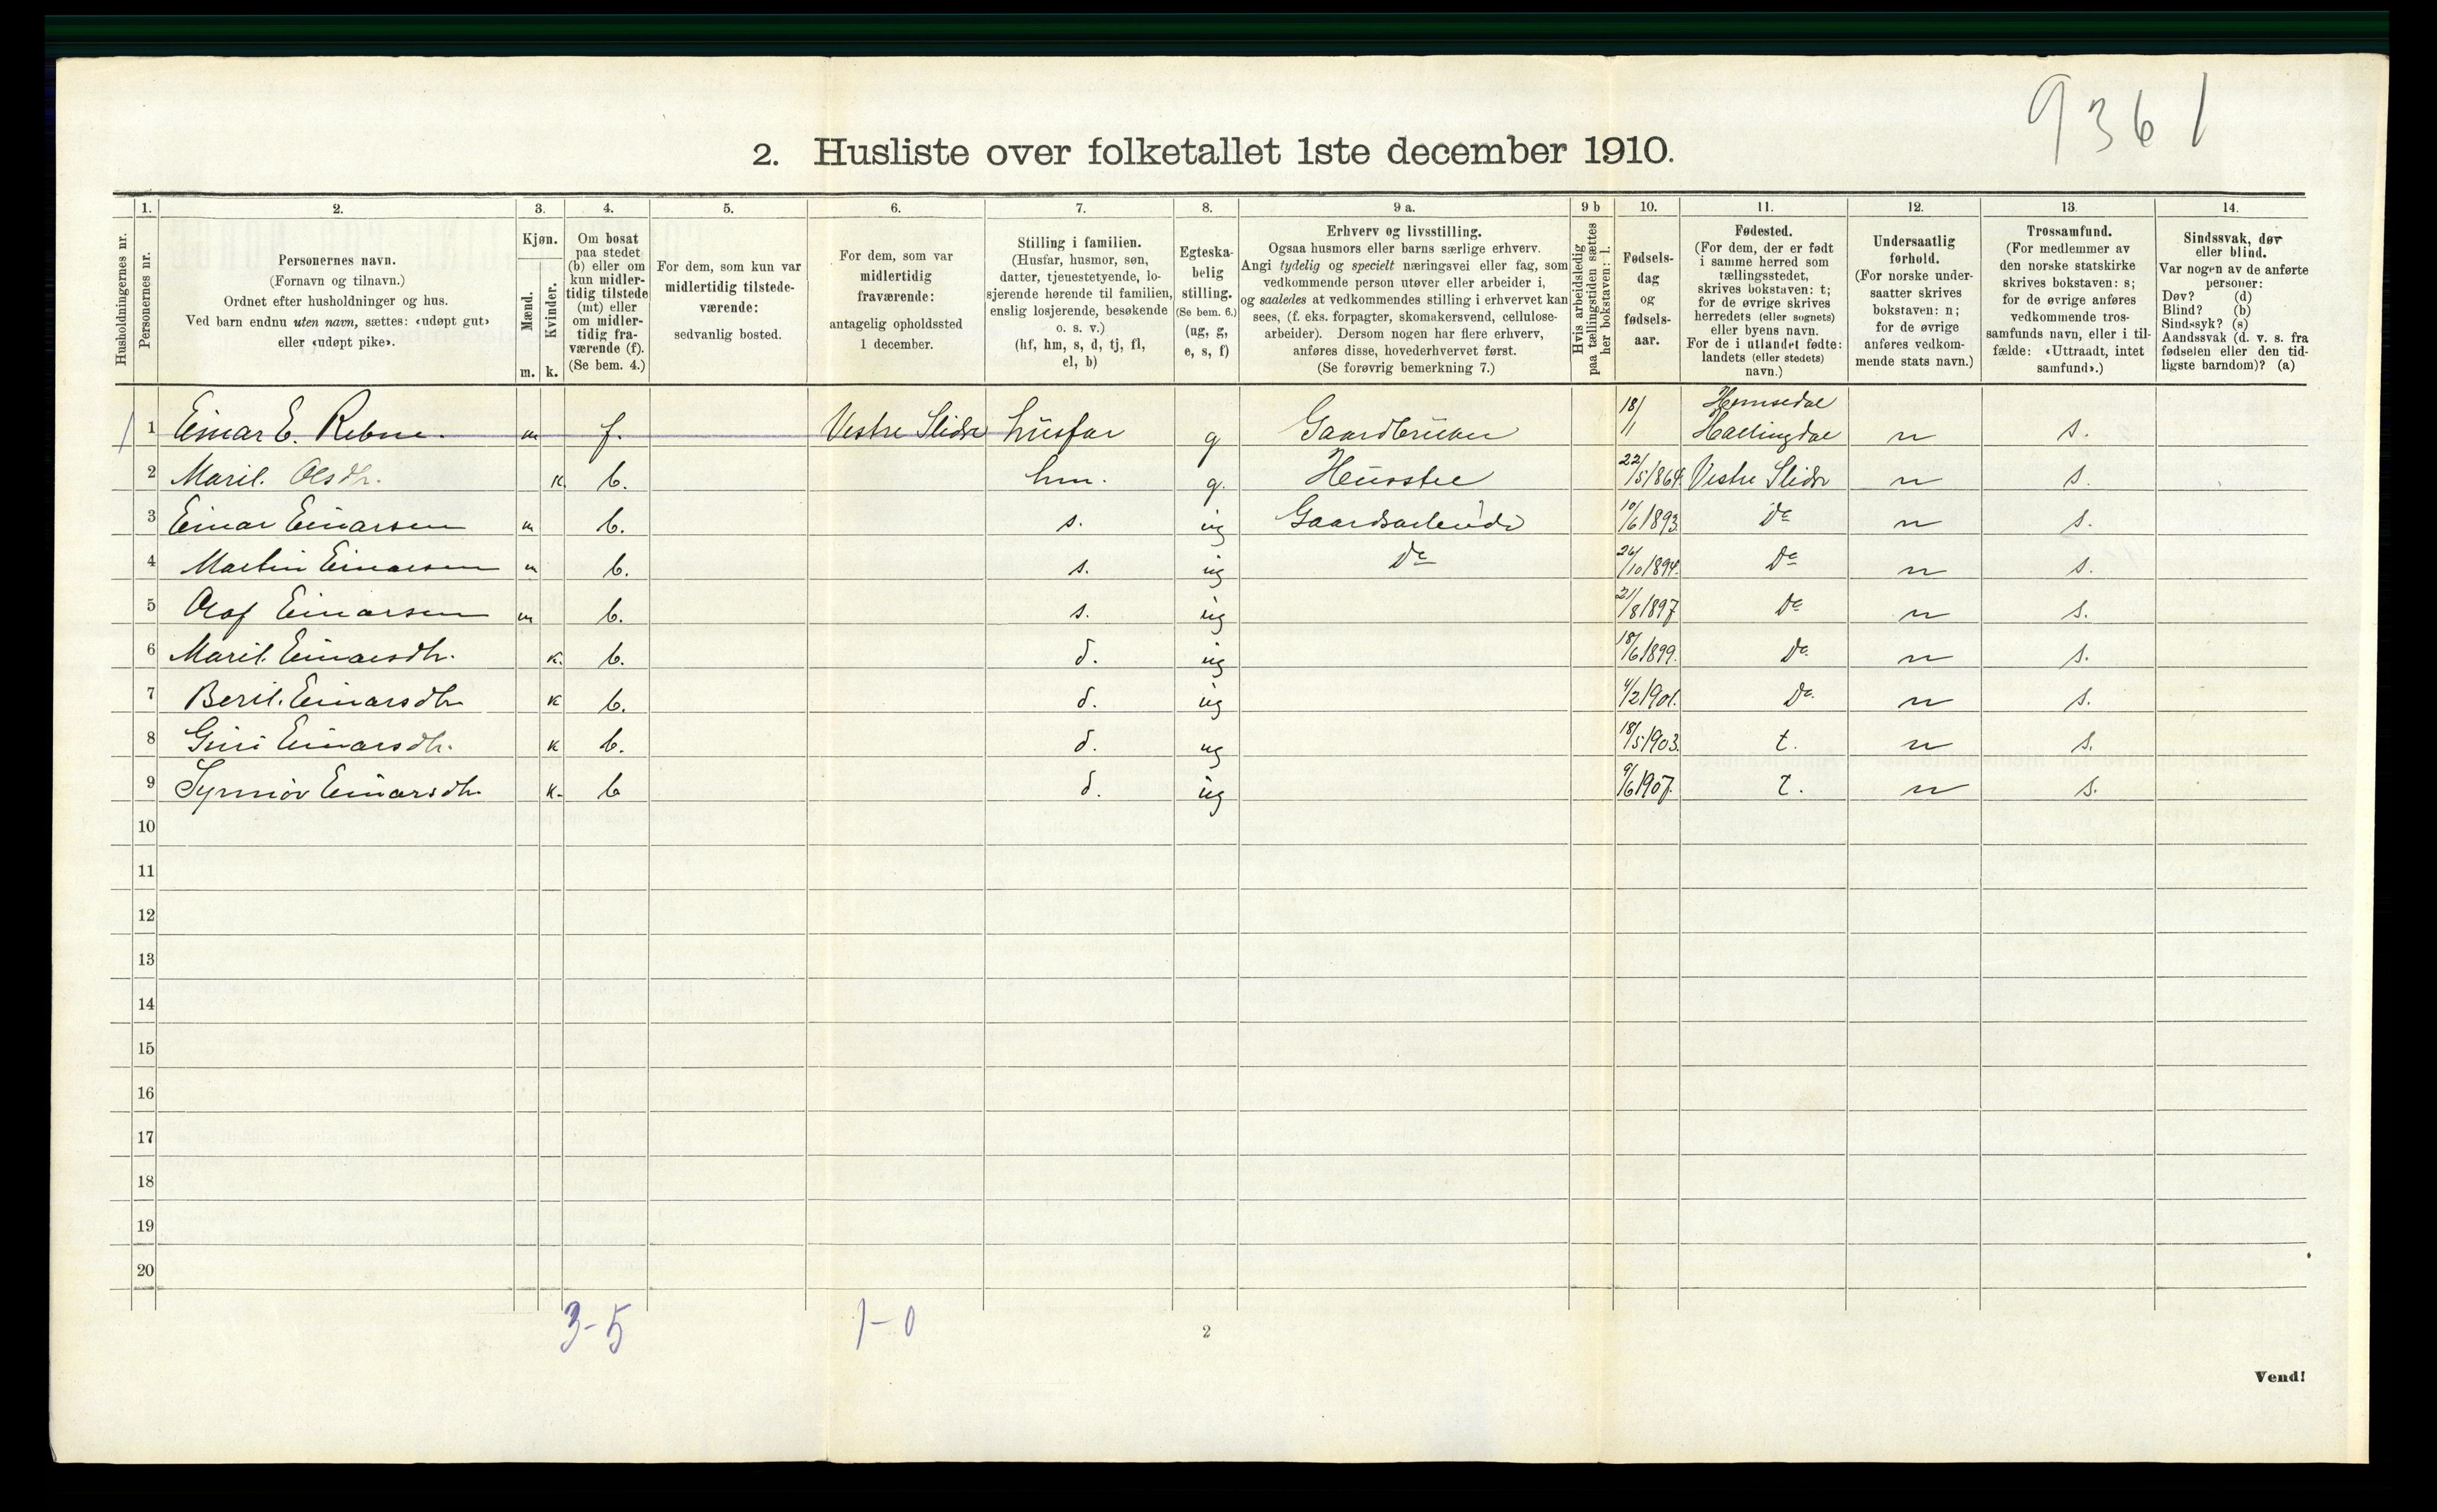 9361
2. Husliste over folketallet 1ste december 1910.
1. 2. 3. 4. 5. 6. 7. 8. 9 a. 9 b 10. 11. 12. 13. 14.
Husholdningernes nr.
Personernes nr.
Personernes navn.
(Fornavn og tilnavn.)
Ordnet efter husholdninger og hus.
Ved barn endnu uten navn, sættes: «udøpt gut»
eller «udøpt pike».
Kjøn.
Mænd.
Kvinder.
m. k.
Om bosat
paa stedet
(b) eller om
kun midler-
tidig tilstede
(mt) eller
om midler-
tidig fra-
værende (f).
(Se bem. 4.)
For dem, som kun var
midlertidig tilstede-
værende:
sedvanlig bosted.
For dem, som var
midlertidig
fraværende:
antagelig opholdssted
1 december.
Stilling i familien.
(Husfar, husmor, søn,
datter, tjenestetyende, lo-
sjerende hørende til familien,
enslig losjerende, besøkende
o. s. v.)
(hf, hm, s, d, tj, fl,
el, b)
Egteska-
belig
stilling.
(Se bem. 6.)
(ug, g,
e, s, f)
Erhverv og livsstilling.
Ogsaa husmors eller barns særlige erhverv.
Angi tydelig og specielt næringsvei eller fag, som
vedkommende person utøver eller arbeider i,
og saaledes at vedkommendes stilling i erhvervet kan
sees, (f. eks. forpagter, skomakersvend, cellulose-
arbeider). Dersom nogen har flere erhverv,
anføres disse, hovederhvervet først.
(Se forøvrig bemerkning 7.)
Hvis arbeidsledig
paa tællingstiden sættes
her bokstaven: l.
Fødsels-
dag
og
fødsels-
aar.
Fødested.
(For dem, der er født
i samme herred som
tællingsstedet,
skrives bokstaven: t;
for de øvrige skrives
herredets (eller sognets)
eller byens navn.
For de i utlandet fødte:
landets (eller stedets)
navn.)
Undersaatlig
forhold.
(For norske under-
saatter skrives
bokstaven: n;
for de øvrige
anføres vedkom-
mende stats navn.)
Trossamfund.
(For medlemmer av
den norske statskirke
skrives bokstaven: s;
for de øvrige anføres
vedkommende tros-
samfunds navn, eller i til-
fælde: «Uttraadt, intet
samfund».)
Sindssvak, døv
eller blind.
Var nogen av de anførte
personer:
Døv? (d)
Blind? (b)
Sindssyk? (s)
Aandssvak (d. v. s. fra
fødselen eller den tid-
ligste barndom)? (a)
1 1 Einar E. Rebne. m f. Vestre Slidre husfar g Gaardbruker 18/1 Hemsedal Hallingdal n s.
2 Marit. Olsdtr. k. b. hm. g. Husstel 22/5 1864. Vestre Slidre n s.
3 Einar Einarsen m b. s. ug Gaardsarbeide 10/6 1893. Do n s.
4 Martin Einarsen m b. s. ug Do 26/10 1894. Do n s.
5 Olaf Einarsen m b. s. ug 21/8 1897 Do n s.
6 Marit. Einarsdtr. k. b. d. ug 18/6 1899. Do n s.
7 Berit. Einarsdtr k b. d. ug 4/2 1901. Do. n s.
8 Guri Einarsdtr. k b. d. ug 18/5 1903. t. n s.
9 Synnøv Einarsdtr. k. b d. ug 9/6 1907. t. n s.
10
11
12
13
14
15
16
17
18
19
20
3-5 1-0
2
Vend!